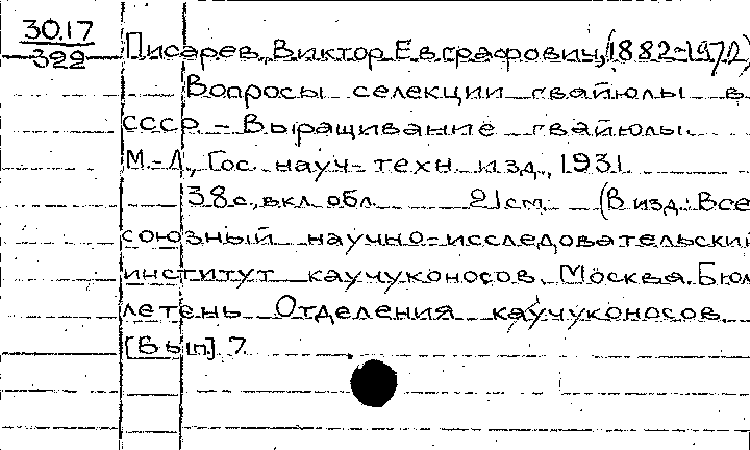 30.17
322
Писарев, Виктор Евграфович, (1882-1972)
Вопросы селекции гвайюлы в
СССР. - Выращивание гвайюлы.
М.-Л., Гос. науч-техн. изд., 1931
38 с., вкл. обл. 21 см. (В изд.: Все
союзный научно-исследовательский
институт каучуконосов. Москва. Бюл
летень Отделения каучуконосов.
[Вып.] 7